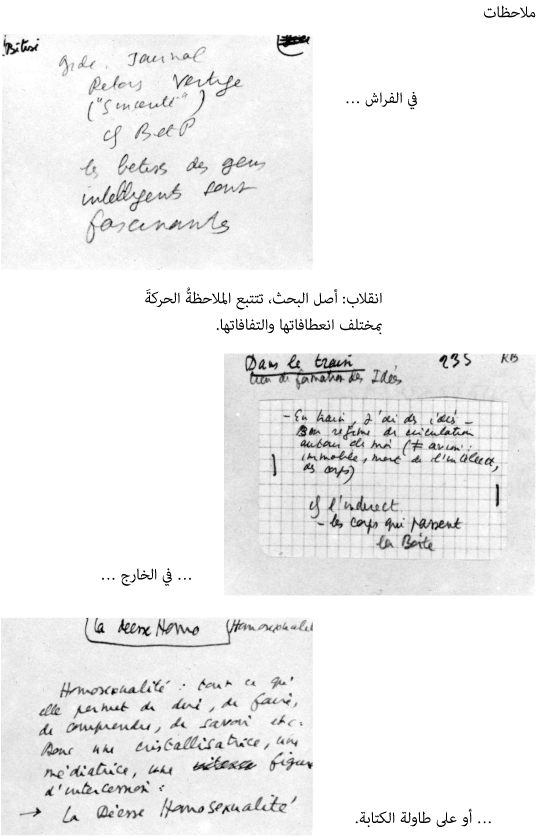 ملاحظات
Bêtise
Gide. Journal
Retors Vertige
("Sincérité")
cf B et P
les bêtises des gens
intelligents sont
fascinants
في الفراش ...
انقلاب: أصل البحث، تتتبع الملاحظةُ الحركةَ
بمختلف انعطافاتها والتفافاتها.
Dans le train 235 RB
lieu de formation des Idées
- En train, j'ai des idées -
Bon régime de circulation
autour de moi (≠ avion :
immobile, mort de l'intellect,
des corps)
cf l'indirect
- les corps qui passent
la Boîte
... في الخارج ...
La Déesse Homo Homosexualité
Homosexualité : tout ce qu'
elle permet de dire, de faire,
de comprendre, de savoir etc.
Donc une cristallisatrice, une
médiatrice, une figure
d'intercession :
→ La Déesse Homosexualité
... أو على طاولة الكتابة.